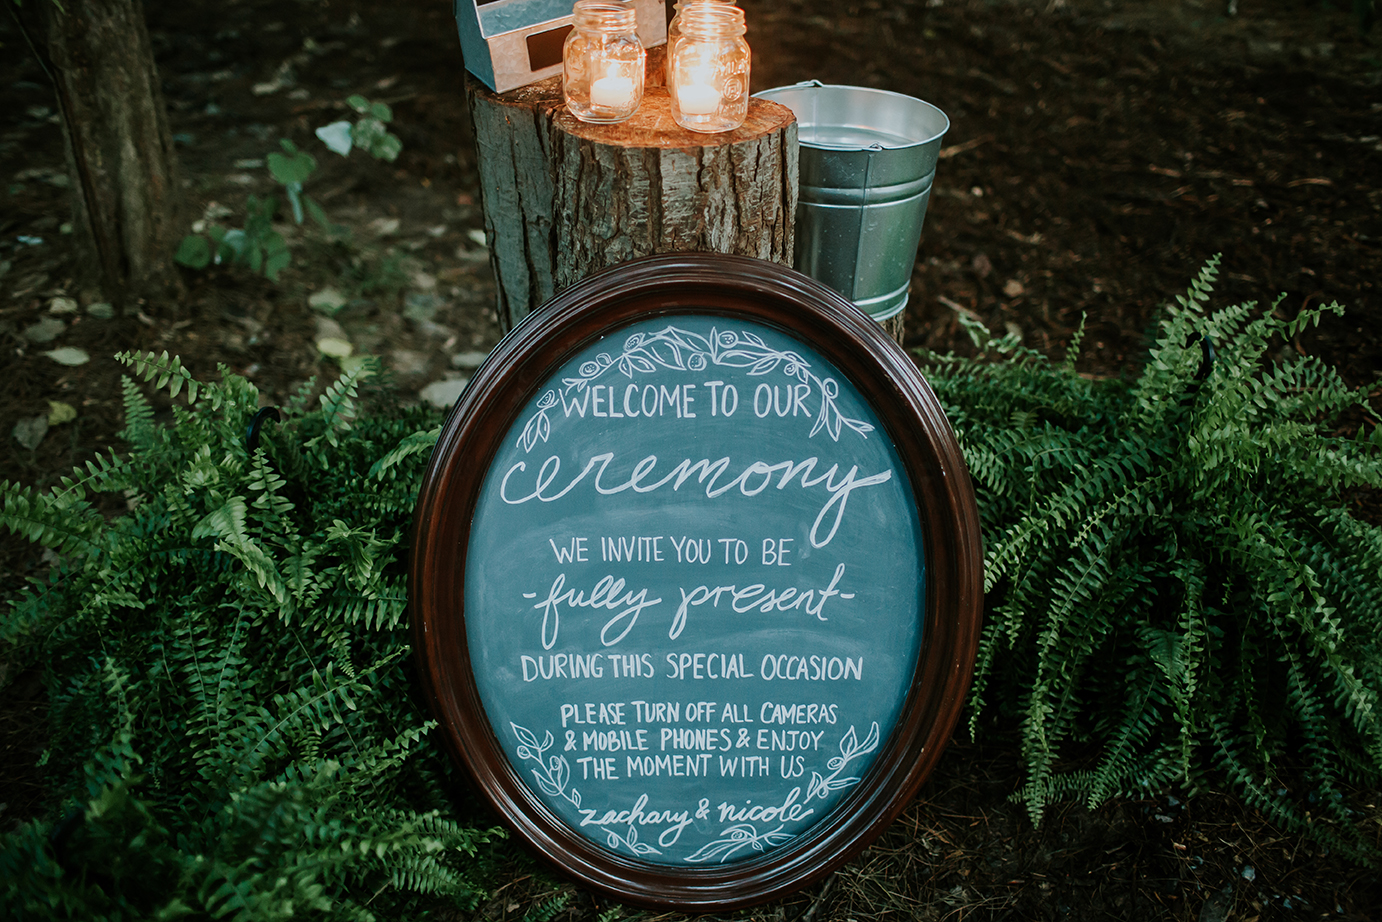 WELCOME TO OUR
ceremony
WE INVITE YOU TO BE
-fully present-
DURING THIS SPECIAL OCCASION
PLEASE TURN OFF ALL CAMERAS
& MOBILE PHONES & ENJOY
THE MOMENT WITH US
zachary & nicole